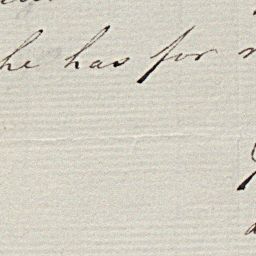 he has for